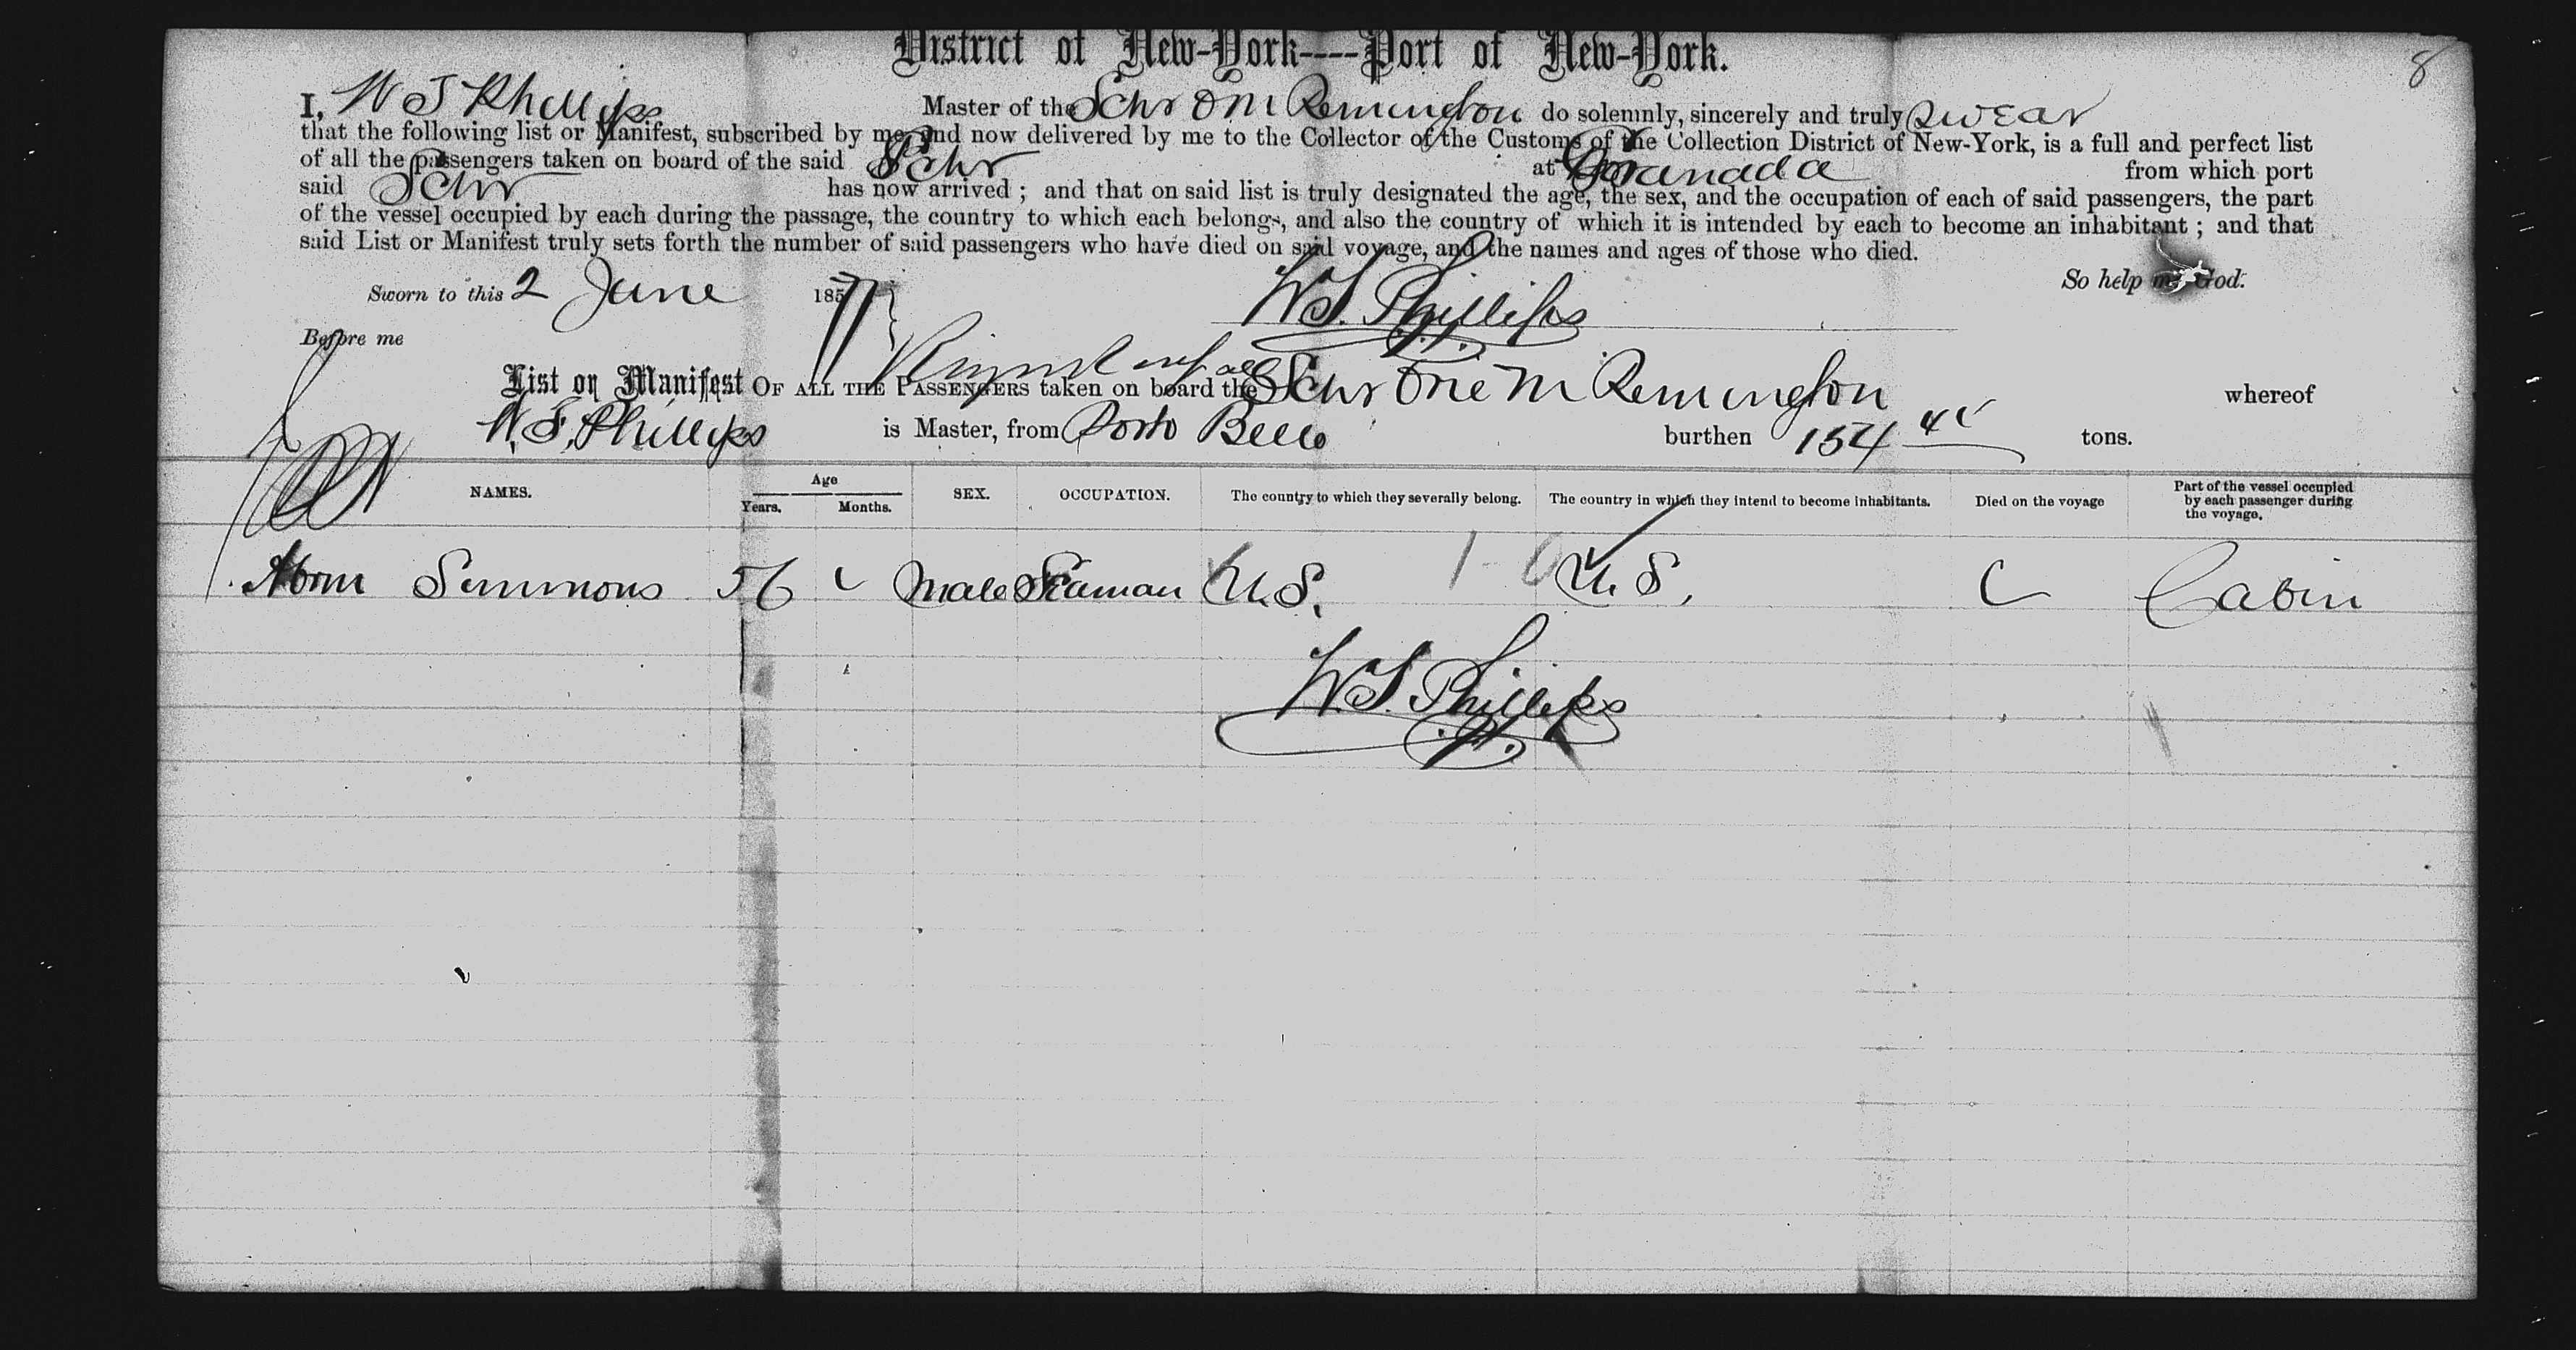 District of New-York----Port of New-York.
8
I, W S Phillips Master of the Schr O M Remington do solemnly, sincerely and truly swear
that the following list or Manifest, subscribed by me, and now delivered by me to the Collector of the Customs of the Collection District of New-York, is a full and perfect list
of all the passengers taken on board of the said Schr at Granada from which port
said Schr has now arrived ; and that on said list is truly designated the age, the sex, and the occupation of each of said passengers, the part
of the vessel occupied by each during the passage, the country to which each belongs, and also the country of which it is intended by each to become an inhabitant ; and that
said List or Manifest truly sets forth the number of said passengers who have died on said voyage, and the names and ages of those who died.
So help me God.
Sworn to this 2 June 1877
W.S. Phillips
Before me
List or Manifest OF ALL THE PASSENGERS taken on board the Schr M Remington whereof
W. S. Phillips is Master, from Porto Bello burthen 154 tons.
NAMES. Age Years. Months. SEX. OCCUPATION. The country to which they severally belong. The country in which they intend to become inhabitants. Died on the voyage Part of the vessel occupied by each passenger during the voyage.
Simmons 56 Male Seaman U.S. U.S. Cabin
W.S. Phillips